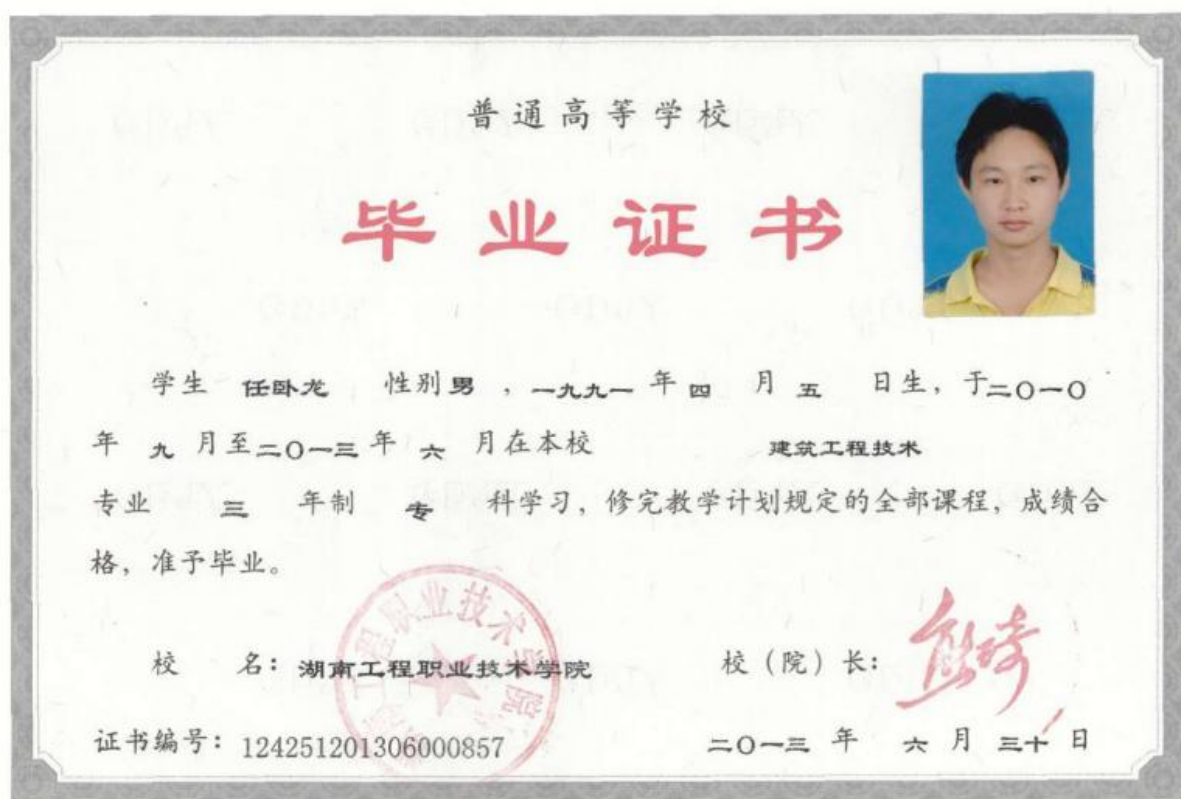 普通高等学校
毕业证书
学生 任卧龙 性别男，一九九一年四月五日生，于二〇一〇
年九月至二〇一三年六月在本校 建筑工程技术
专业 三 年制 专 科学习，修完教学计划规定的全部课程，成绩合
格，准予毕业。
校 名：湖南工程职业技术学院 校（院）长：
证书编号：124251201306000857 二〇一三年 六月三十日